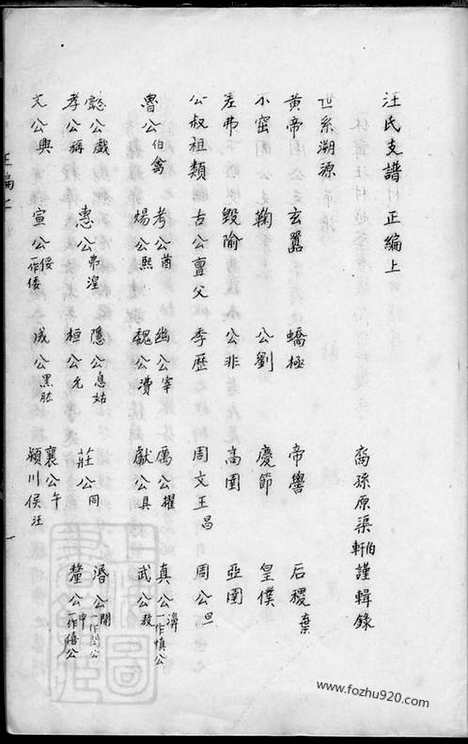 汪氏支譜 正編上
裔孫原渠伯軒謹輯錄
世系溯源
黃帝 玄囂 蟜極 帝嚳 后稷棄
不窋 鞠 公劉 慶節 皇僕
差弗 毀隃 公非 高圉 亞圉
公叔祖類 古公亶父 季歷 周文王昌 周公旦
魯公伯禽 考公酋 煬公熙 幽公宰 魏公㵒 厲公擢 獻公具 真公濞一作慎公 武公敖
懿公戲 孝公稱 惠公弗湟 隱公息姑 桓公允 莊公同 湣公開一作閔公 釐公申一作僖公
文公興 宣公俀一作倭 成公黑肱 襄公午 潁川侯汪
正編上
一
www.fozhu920.com